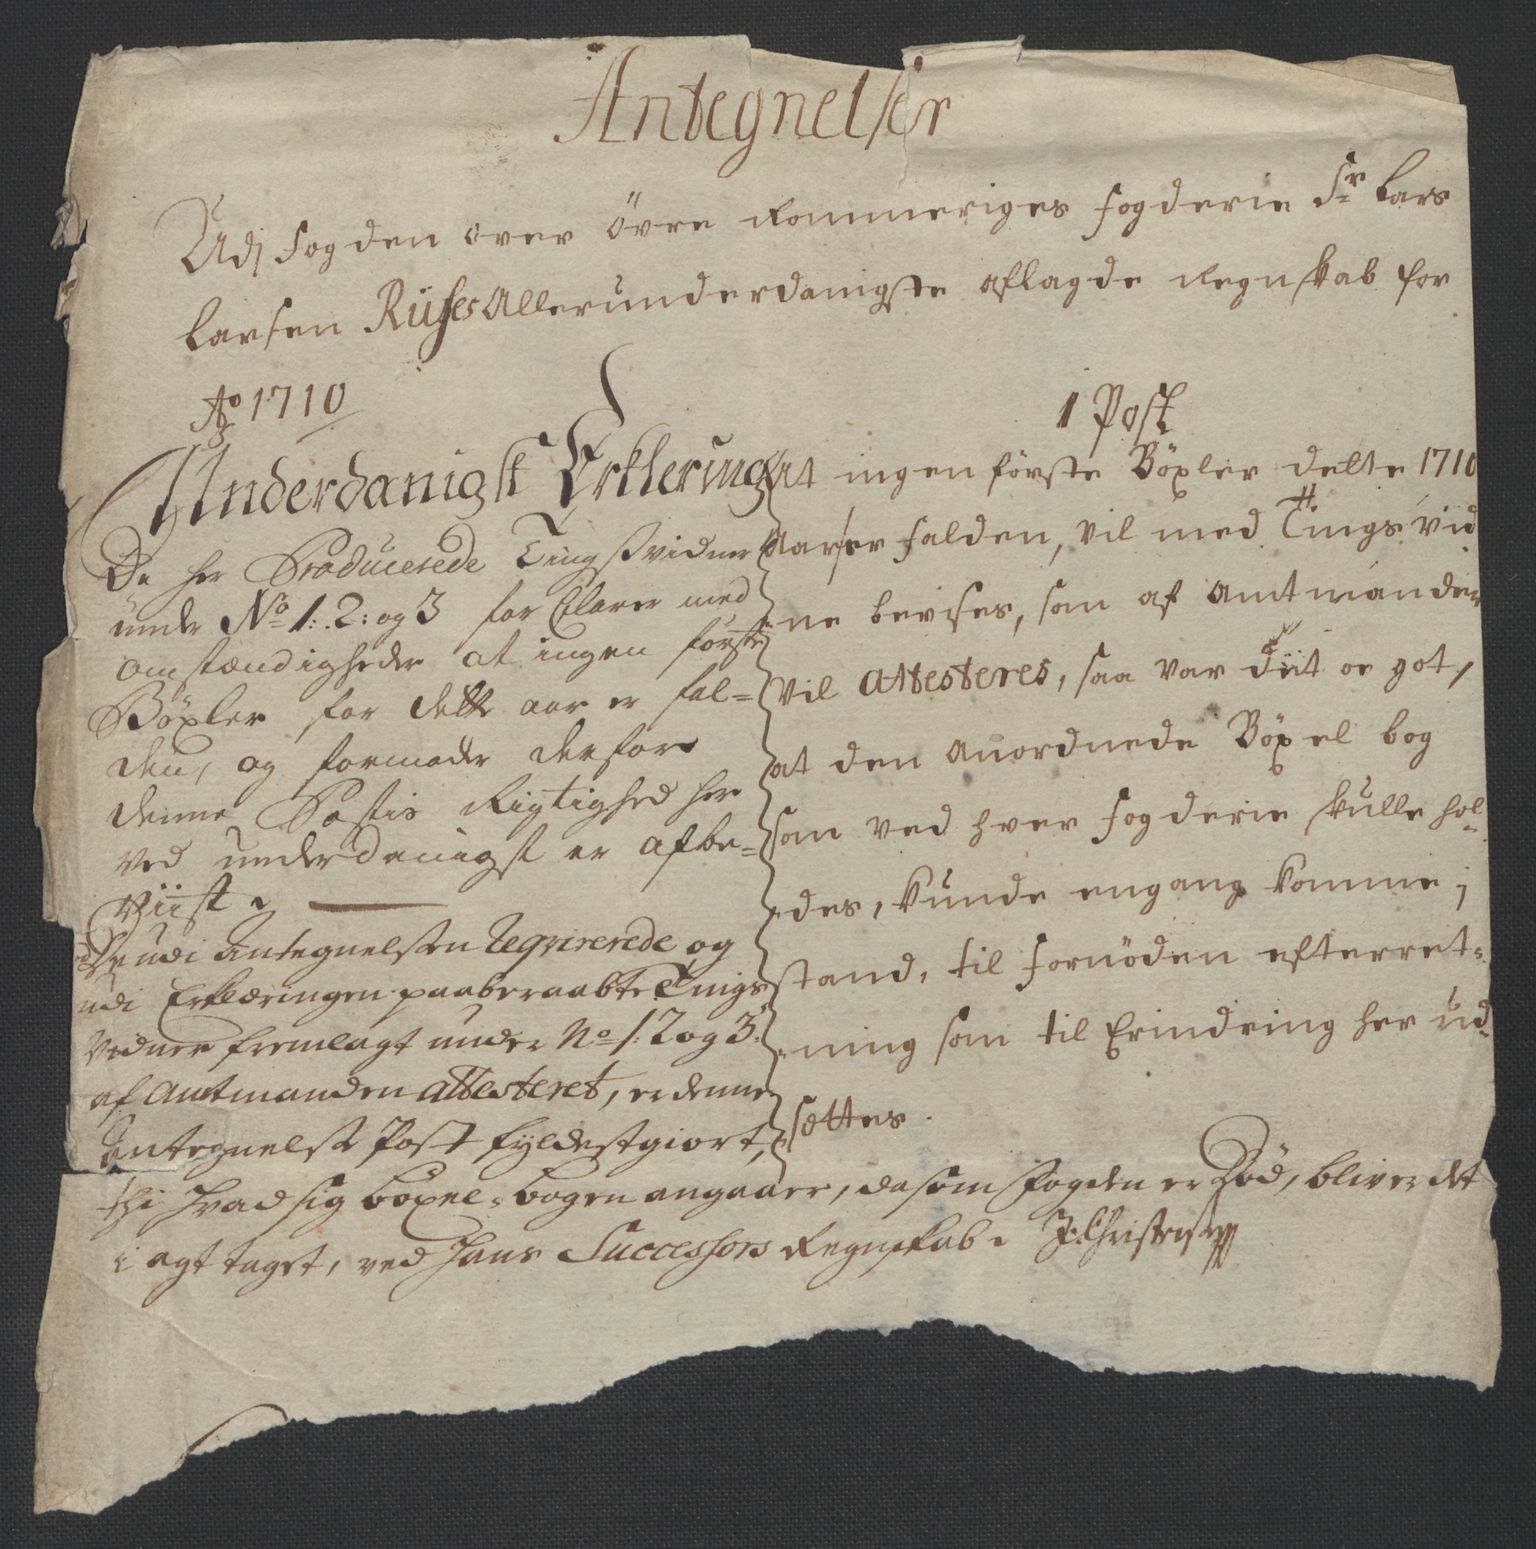 Antegnelser
Udj Fogden over Övre Rommeriges Fogderie Sr Lars
Larsen Rüses Allerunderdanigste aflagde Regnskab for
Ao 1710
1 Post
At ingen förste Böxler dette 1710
Aar er falden, vil med Tings vid
ne bevises, som af Amtmanden
vil Attesteres, saa var diit oc got,
at den Anordnede Böxel bog
som ved hver Fogderie skulle hol=
des, kunde engang komme i
stand, til fornöden efterret=
ning som til Erindring her ud=
settes.
Underdanigst Erklering
De her Producerede Tingsvidner
under No 1: 2: og 3 forClarer med
omstændigheder at ingen förste
Böxler for dette aar er fal=
den, og formoder derfore
denne Postis Rigtighed her
ved underdanigst er afbe=
viist.
De udi Antegnelsen Reqvirerede og
udi Erklæringen paaberaabte Tings
Vidner fremlagt under No 1: 2 og 3.
af Amtmanden attesteret, er denne
Antegnelse Post fyldestgiort,
thi hvad sig böxel-bogen angaaer, da som fogden er Död, bliver det
i agt taget, ved hans Successors Regnskab. J: Christensen